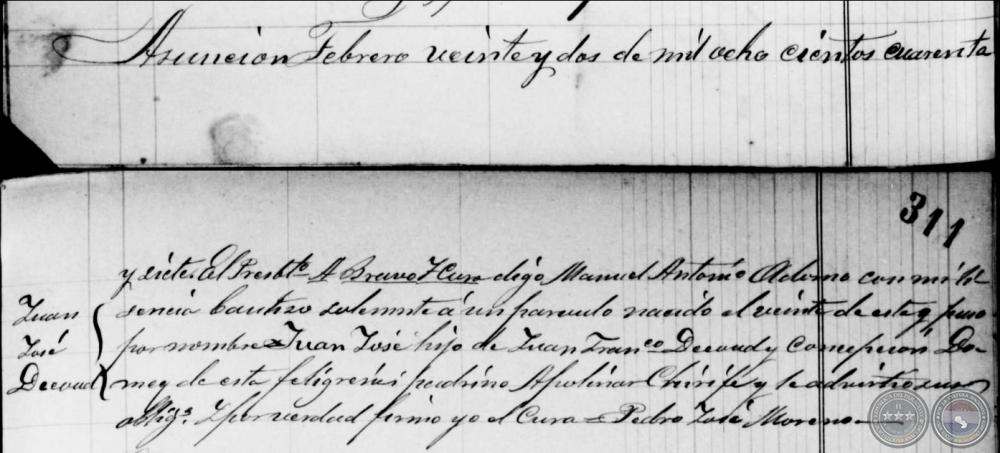 Asuncion Febrero veinte y dos de mil ocho cientos cuarenta
311
y siete. El Presbto A Bravo Y Cura digo Manuel Antonio Adorno con mi li
sencia bautizo solemnte á un parvulo nacido el veinte de este q. puso
por nombre Juan José hijo de Juan Franco Decoud y Concepcion Do-
meq de esta feligresia; padrino Apolinar Chirife y le advirtio sus
oblig.s Y por verdad firmo yo el Cura = Pedro José Moreno
Juan
José
Decoud